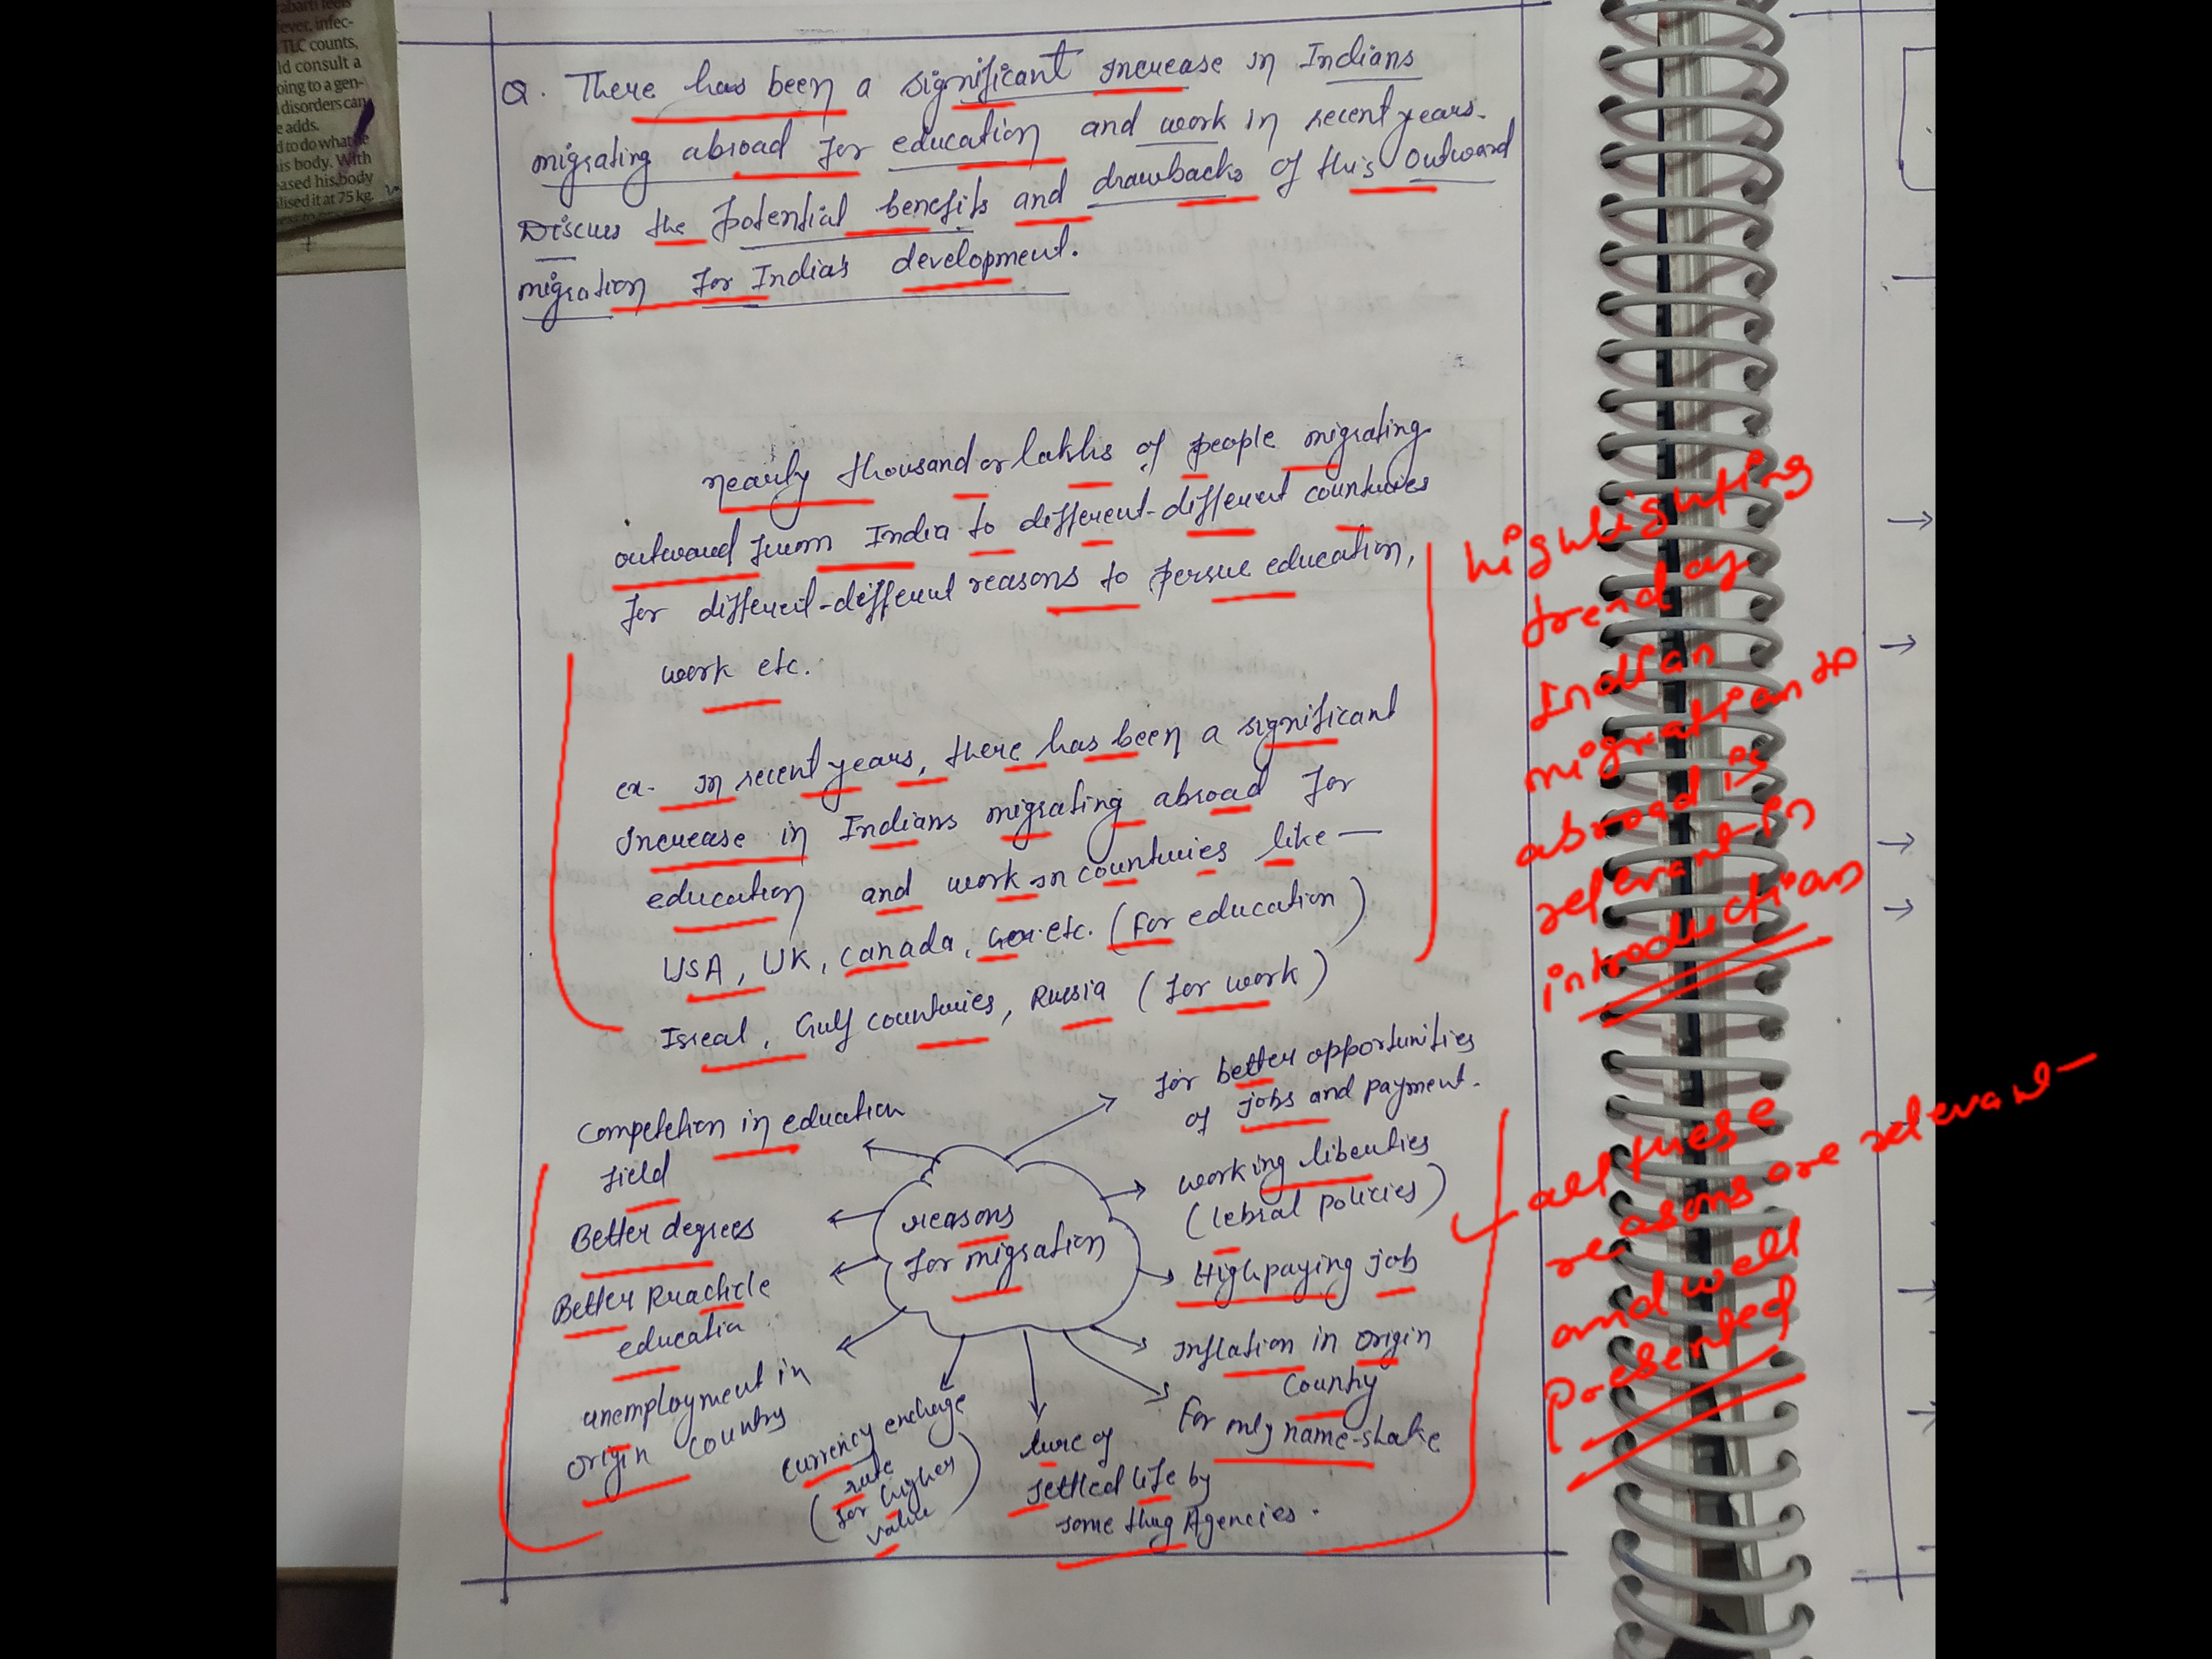 rabarti feels
fever, infec-
TLC counts,
ld consult a
oing to a gen-
disorders can
e adds.
d to do what he
is body. With
ased his body
lised it at 75 kg.
Q. There has been a significant increase in Indians
migrating abroad for education and work in recent years.
Discuss the potential benefits and drawbacks of this outward
migration for India's development.
nearly thousand or lakhs of people migrating
outward from India to different-different countries
for different-different reasons to persue education,
work etc.
ex- In recent years, there has been a significant
Increase in Indians migrating abroad for
education and work in countries like —
USA, UK, Canada, Ger. etc. (for education)
Isreal, Gulf countries, Russia (for work)
highlighting
trend of
Indian
migration to
abroad is
relevant in
introduction
reasons
for migration
for better opportunities
of jobs and payment.
working liberties
(lebral policies)
High paying job
Inflation in origin
Country
For only name-shake
lure of
settled life by
some thug Agencies.
Currency exchage
rate
(for higher
value)
unemployment in
origin country
Better Practicle
education
Better degrees
Competetion in education
field
all these
reasons are relevant
and well
presented